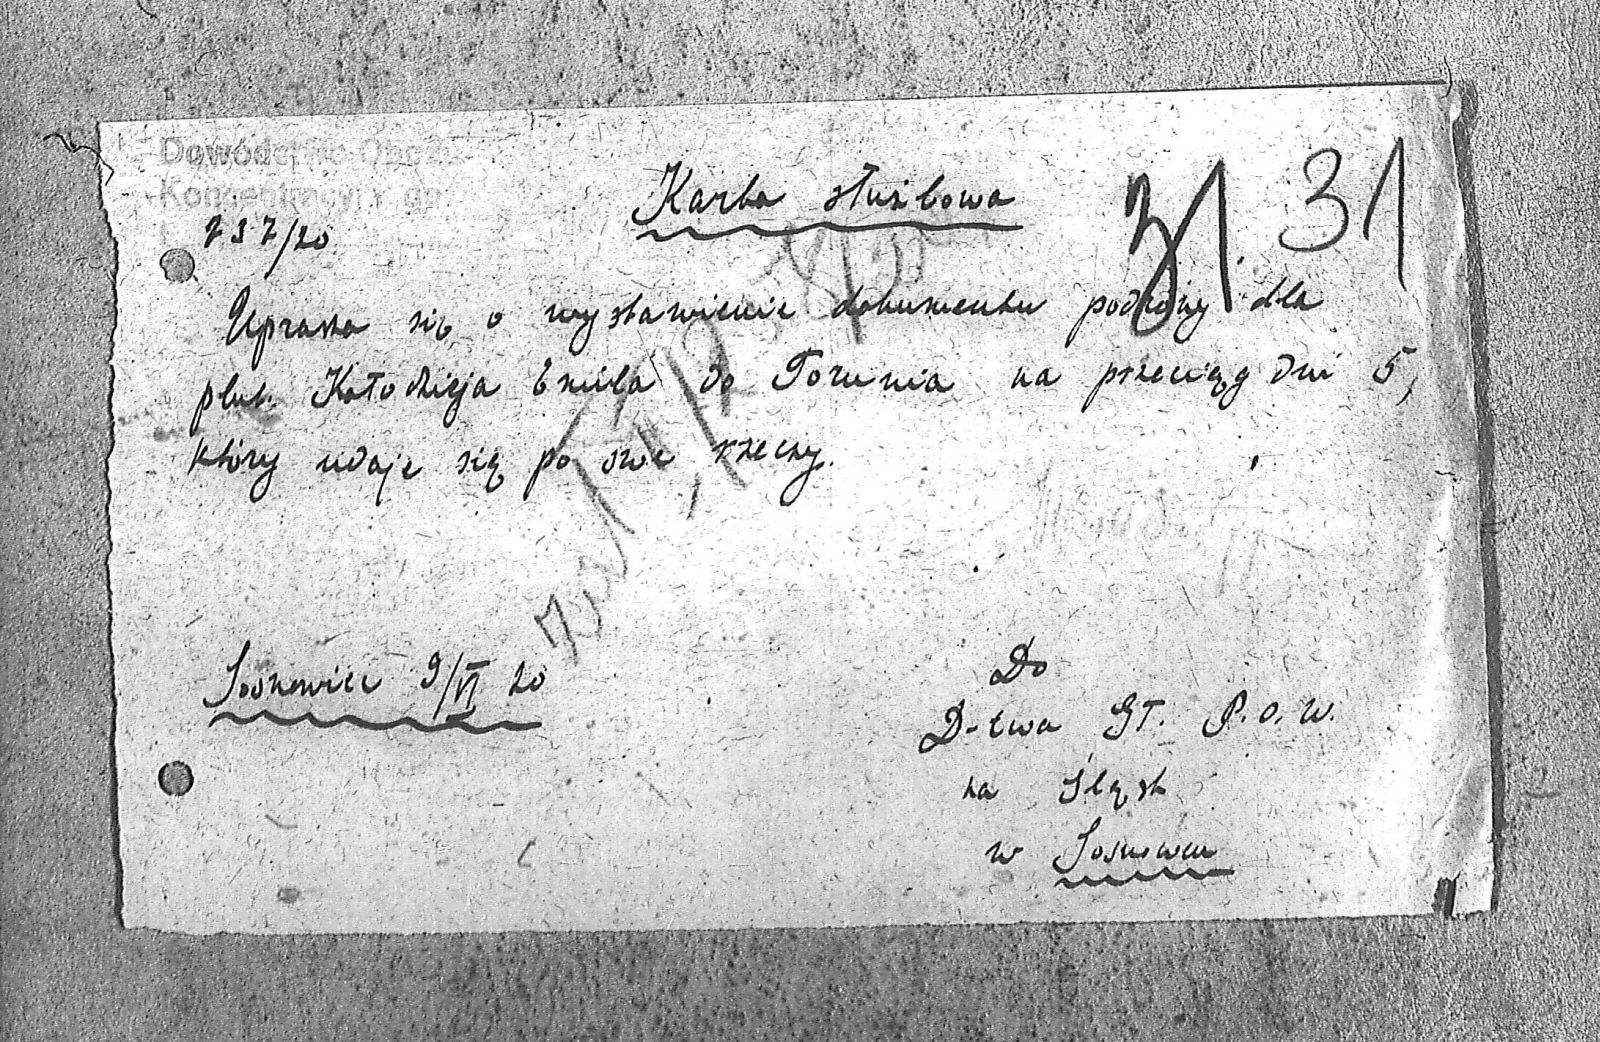 Dowództwo Oboz
Koncentracyj
Karta służbowa
31 31
737/20
Uprasza się o wystawienie dokumentu podróży dla
plut. Kołodzieja Emila do Torunia na przeciąg dni 5,
który udaje się po swe rzeczy.
Sosnowiec 9/VI 20
Do
D-twa GŁ. P.O.W.
na Śląsk
w Sosnowcu